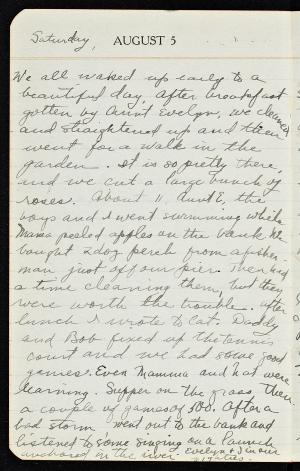 Saturday, AUGUST 5
We all waked up early to a
beautiful day, after breakfast
gotten by Aunt Evelyn, we cleaned
and straightened up and then
went for a walk in the
garden. It is so pretty there,
and we cut a large bunch of
roses. About 11, Aunt E, the
boys and I went swimming while
Mama peeled apples on the bank. We
bought 2 doz perch from a fisher-
man just off our pier. Then had
a time cleaning them, but they
were worth the trouble. after
lunch I wrote to Cat. Daddy
and Bob fixed up the tennis
court and we had some good
games. Even Mamma and Nat were
learning. Supper on the grass. Then
a couple of games of 500. After a
bad storm went out to the bank and
listened to some singing on a launch
anchored in the river. Evelyn + I in our
nighties.